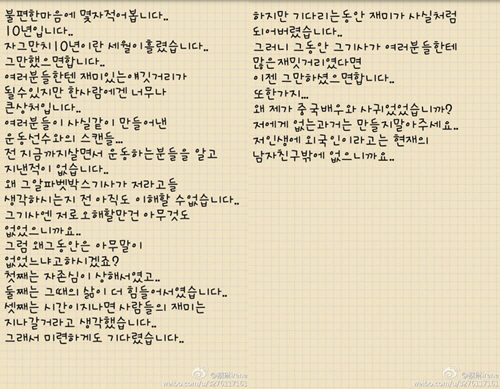 불편한마음에 몇자적어봅니다..
10년입니다..
자그만치10년이란 세월이흘렀습니다..
그만했으면합니다..
여러분들한텐 재미있는얘깃거리가
될수있지만 한사람에겐 너무나
큰상처입니다..
여러분들이 사실같이 만들어낸
운동선수와의 스캔들...
전 지금까지살면서 운동하는분들을 알고
지낸적이 없습니다..
왜 그알파벳박스기사가 저라고들
생각하시는지 전 아직도 이해할 수없습니다..
그기사엔 저로오해할만건 아무것도
없었으니까요..
그럼 왜그동안은 아무말이
없었느냐고하시겠죠?
첫째는 자존심이 상해서였고..
둘째는 그때의 삶이 더 힘들어서였습니다..
셋째는 시간이지나면 사람들의 재미는
지나갈거라고 생각했습니다..
그래서 미련하게도 기다렸습니다..
하지만 기다리는동안 재미가 사실처럼
되어버렸습니다..
그러니 그동안 그기사가 여러분들한테
많은재밋거리였다면
이젠 그만하셨으면합니다..
또한가지...
왜 제가 중국배우와 사귀었었습니까?
저에게 없는과거는 만들지말아주세요..
저인생에 외국인이라고는 현재의
남자친구밖에 없으니까요..
weibo.com/u/3276317161
weibo.com/u/3276317161